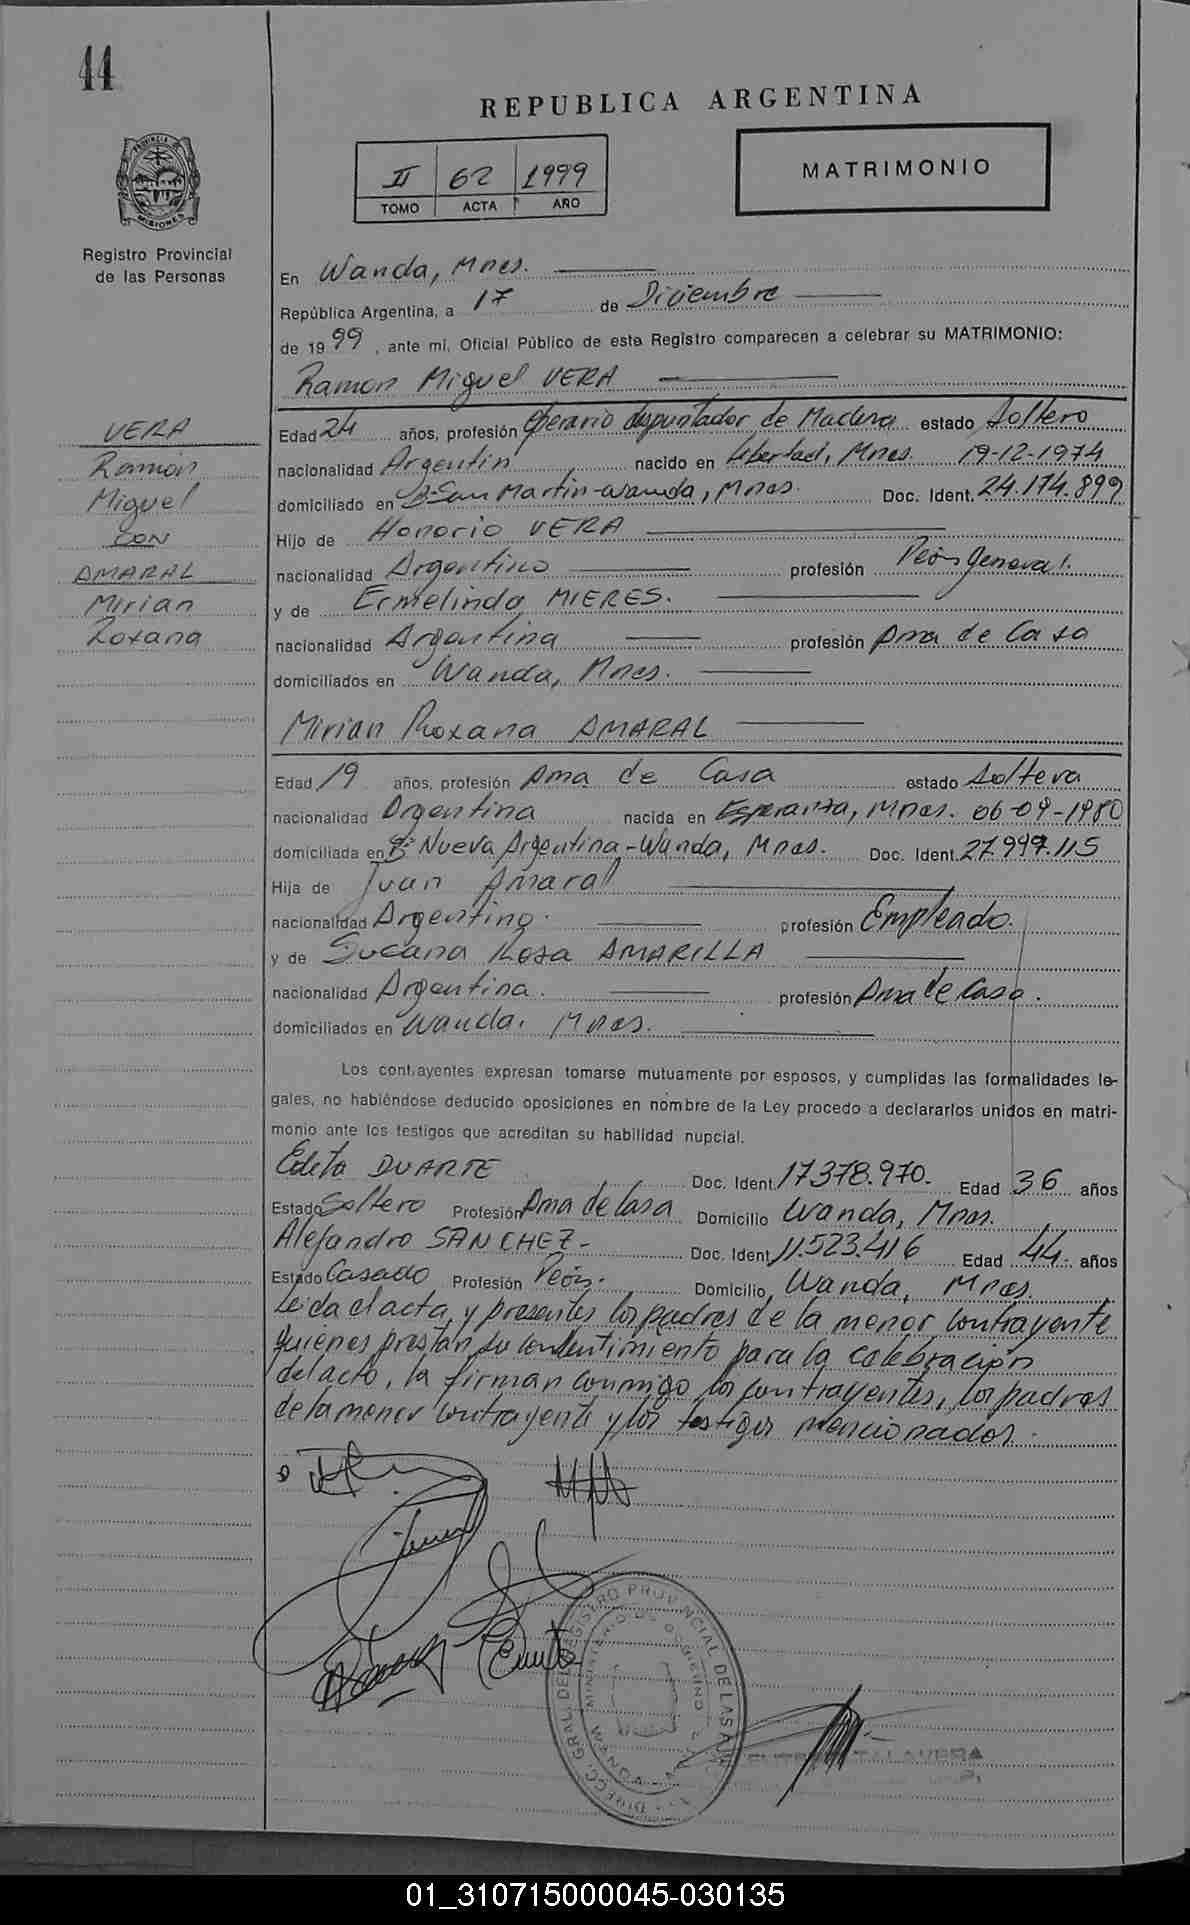 44
REPUBLICA ARGENTINA
II 62 1999
TOMO ACTA AÑO
MATRIMONIO
PROVINCIA DE MISIONES
Registro Provincial
de las Personas
En Wanda, Mnes.
República Argentina, a 17 de Diciembre
de 1999, ante mí, Oficial Público de este Registro comparecen a celebrar su MATRIMONIO:
Ramon Miguel VERA
VERA
Ramón
Miguel
CON
AMARAL
Mirian
Roxana
Edad 24 años, profesión Operario despuntador de Madera estado Soltero
nacionalidad Argentin nacido en Libertad, Mnes. 19-12-1974
domiciliado en Bº San Martin-Wanda, Mnes. Doc. Ident. 24.174.899
Hijo de Honorio VERA
nacionalidad Argentino profesión Peón General.
y de Ermelinda MIERES.
nacionalidad Argentina profesión Ama de Casa
domiciliados en Wanda, Mnes.
Mirian Roxana AMARAL
Edad 19 años, profesión Ama de Casa estado Soltera
nacionalidad Argentina nacida en Esperanza, Mnes. 06-09-1980
domiciliada en Bº Nueva Argentina-Wanda, Mnes. Doc. Ident. 27.997.115
Hija de Juan Amaral
nacionalidad Argentino. profesión Empleado.
y de Sucana Rosa AMARILLA
nacionalidad Argentina. profesión Ama de Casa.
domiciliados en Wanda. Mnes.
Los contrayentes expresan tomarse mutuamente por esposos, y cumplidas las formalidades le-
gales, no habiéndose deducido oposiciones en nombre de la Ley procedo a declararlos unidos en matri-
monio ante los testigos que acreditan su habilidad nupcial.
Edita DUARTE Doc. Ident. 17378.970. Edad 36 años
Estado Soltero Profesión Ama de Casa Domicilio Wanda, Mnes.
Alejandro SANCHEZ- Doc. Ident. 11.523.416 Edad 44 años
Estado Casado Profesión Peón. Domicilio, Wanda, Mnes.
Leida el acta, y presentes los padres de la menor contrayente
quienes prestan su consentimiento para la celebración
del acto, la firman conmigo los contrayentes, los padres
de la menor contrayente y los testigos mencionados.
DIRECC. GRAL. DEL REGISTRO PROVINCIAL DE LAS
MINISTERIO DE GOBIERNO
TALAVERA
01_310715000045-030135